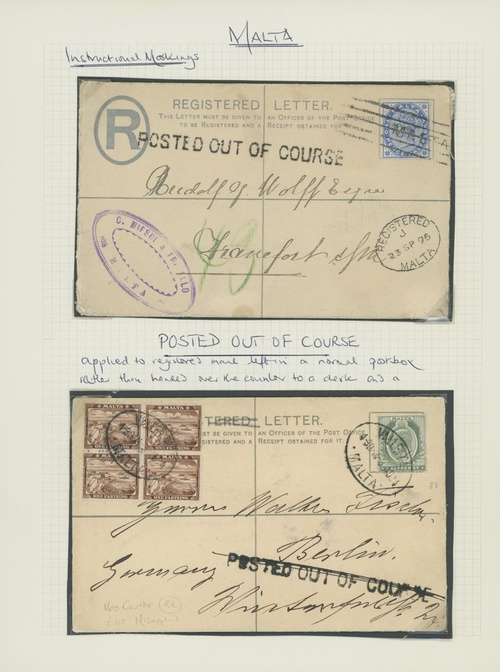 MALTA
Instructional Markings
REGISTERED LETTER.
THIS LETTER MUST BE GIVEN TO AN OFFICER OF THE POST OFFICE
TO BE REGISTERED AND A RECEIPT OBTAINED FOR IT.
R
POSTED OUT OF COURSE
Rudolf J. Wolff Esqre
Francfort s/m
REGISTERED
J
23 SP 95
MALTA
MALTA
POSTED OUT OF COURSE
applied to registered mail left in a normal postbox
rather than handed over the counter to a clerk and a
MALTA MALTA
ONE FARTHING ONE FARTHING
MALTA MALTA
ONE FARTHING ONE FARTHING
VALLETTA
MALTA
TERED LETTER.
MUST BE GIVEN TO AN OFFICER OF THE POST OFFICE
REGISTERED AND A RECEIPT OBTAINED FOR IT.
MALTA
VALLETTA
MALTA
Walter
Berlin.
Germany
POSTED OUT OF COURSE